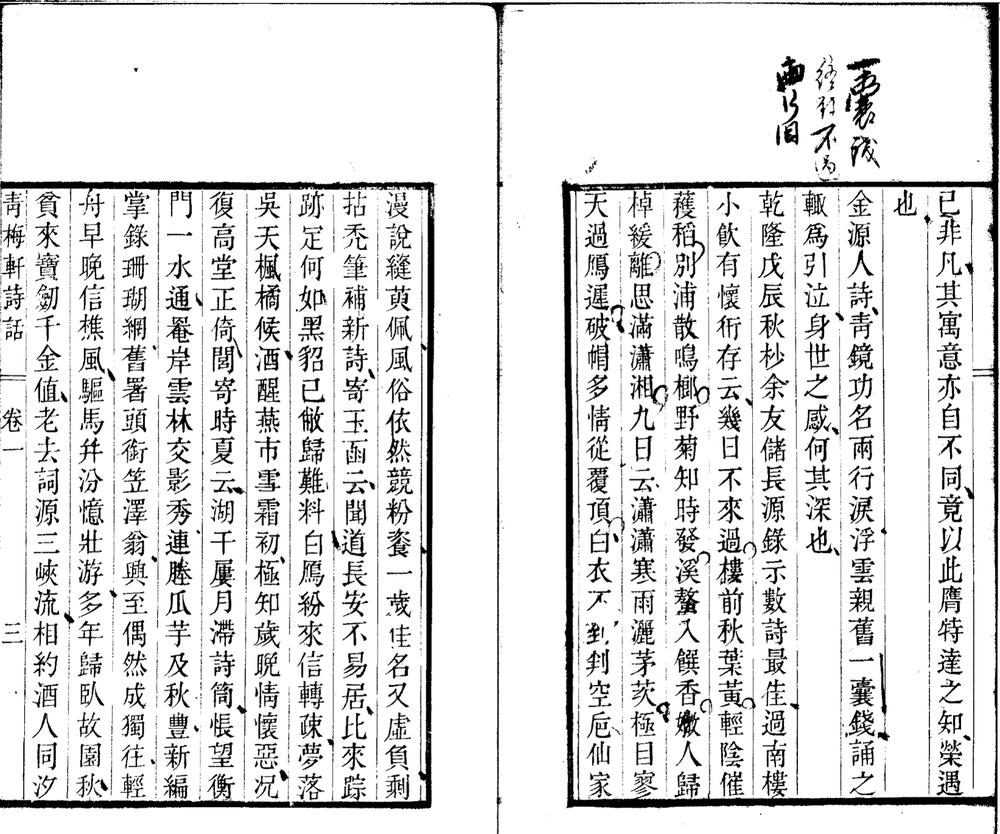 一囊錢
不
兩行泪
已非凡其寓意亦自不同竟以此膺特達之知榮遇
也
金源人詩青鏡功名兩行淚浮雲親舊一囊錢誦之
輙爲引泣身世之感何其深也
乾隆戊辰秋杪余友儲長源錄示數詩最佳過南樓
小飮有懷衎存云幾日不來過樓前秋葉黃輕陰催
穫稻別浦散鳴榔野菊知時發溪螯入饌香嫩人歸
棹緩離思滿瀟湘九日云瀟瀟寒雨灑茅茨極目寥
天過鴈遲破帽多情從覆頂白衣不到到空巵仙家
漫說縫萸佩風俗依然競粉餈一歲佳名又虛負剩
拈禿筆補新詩寄玉函云聞道長安不易居比來踪
跡定何如黑貂已敝歸難料白鴈紛來信轉疎夢落
吳天楓橘候酒醒燕市雪霜初極知歲晩情懷惡况
復高堂正倚閭寄時夏云湖干屢月滯詩筒悵望衡
門一水通罨岸雲林交影秀連塍瓜芋及秋豐新編
掌錄珊瑚網舊署頭銜笠澤翁興至偶然成獨往輕
舟早晚信樵風驅馬幷汾憶壯游多年歸臥故園秋
貧來寶劒千金值老去詞源三峽流相約酒人同汐
靑梅軒詩話 卷一 三